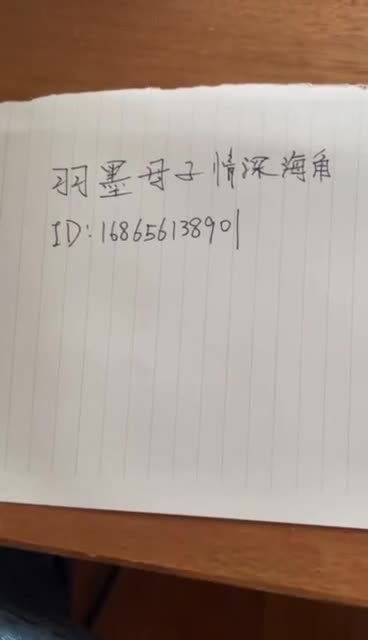 羽墨母子情深海角
ID:16865613890|